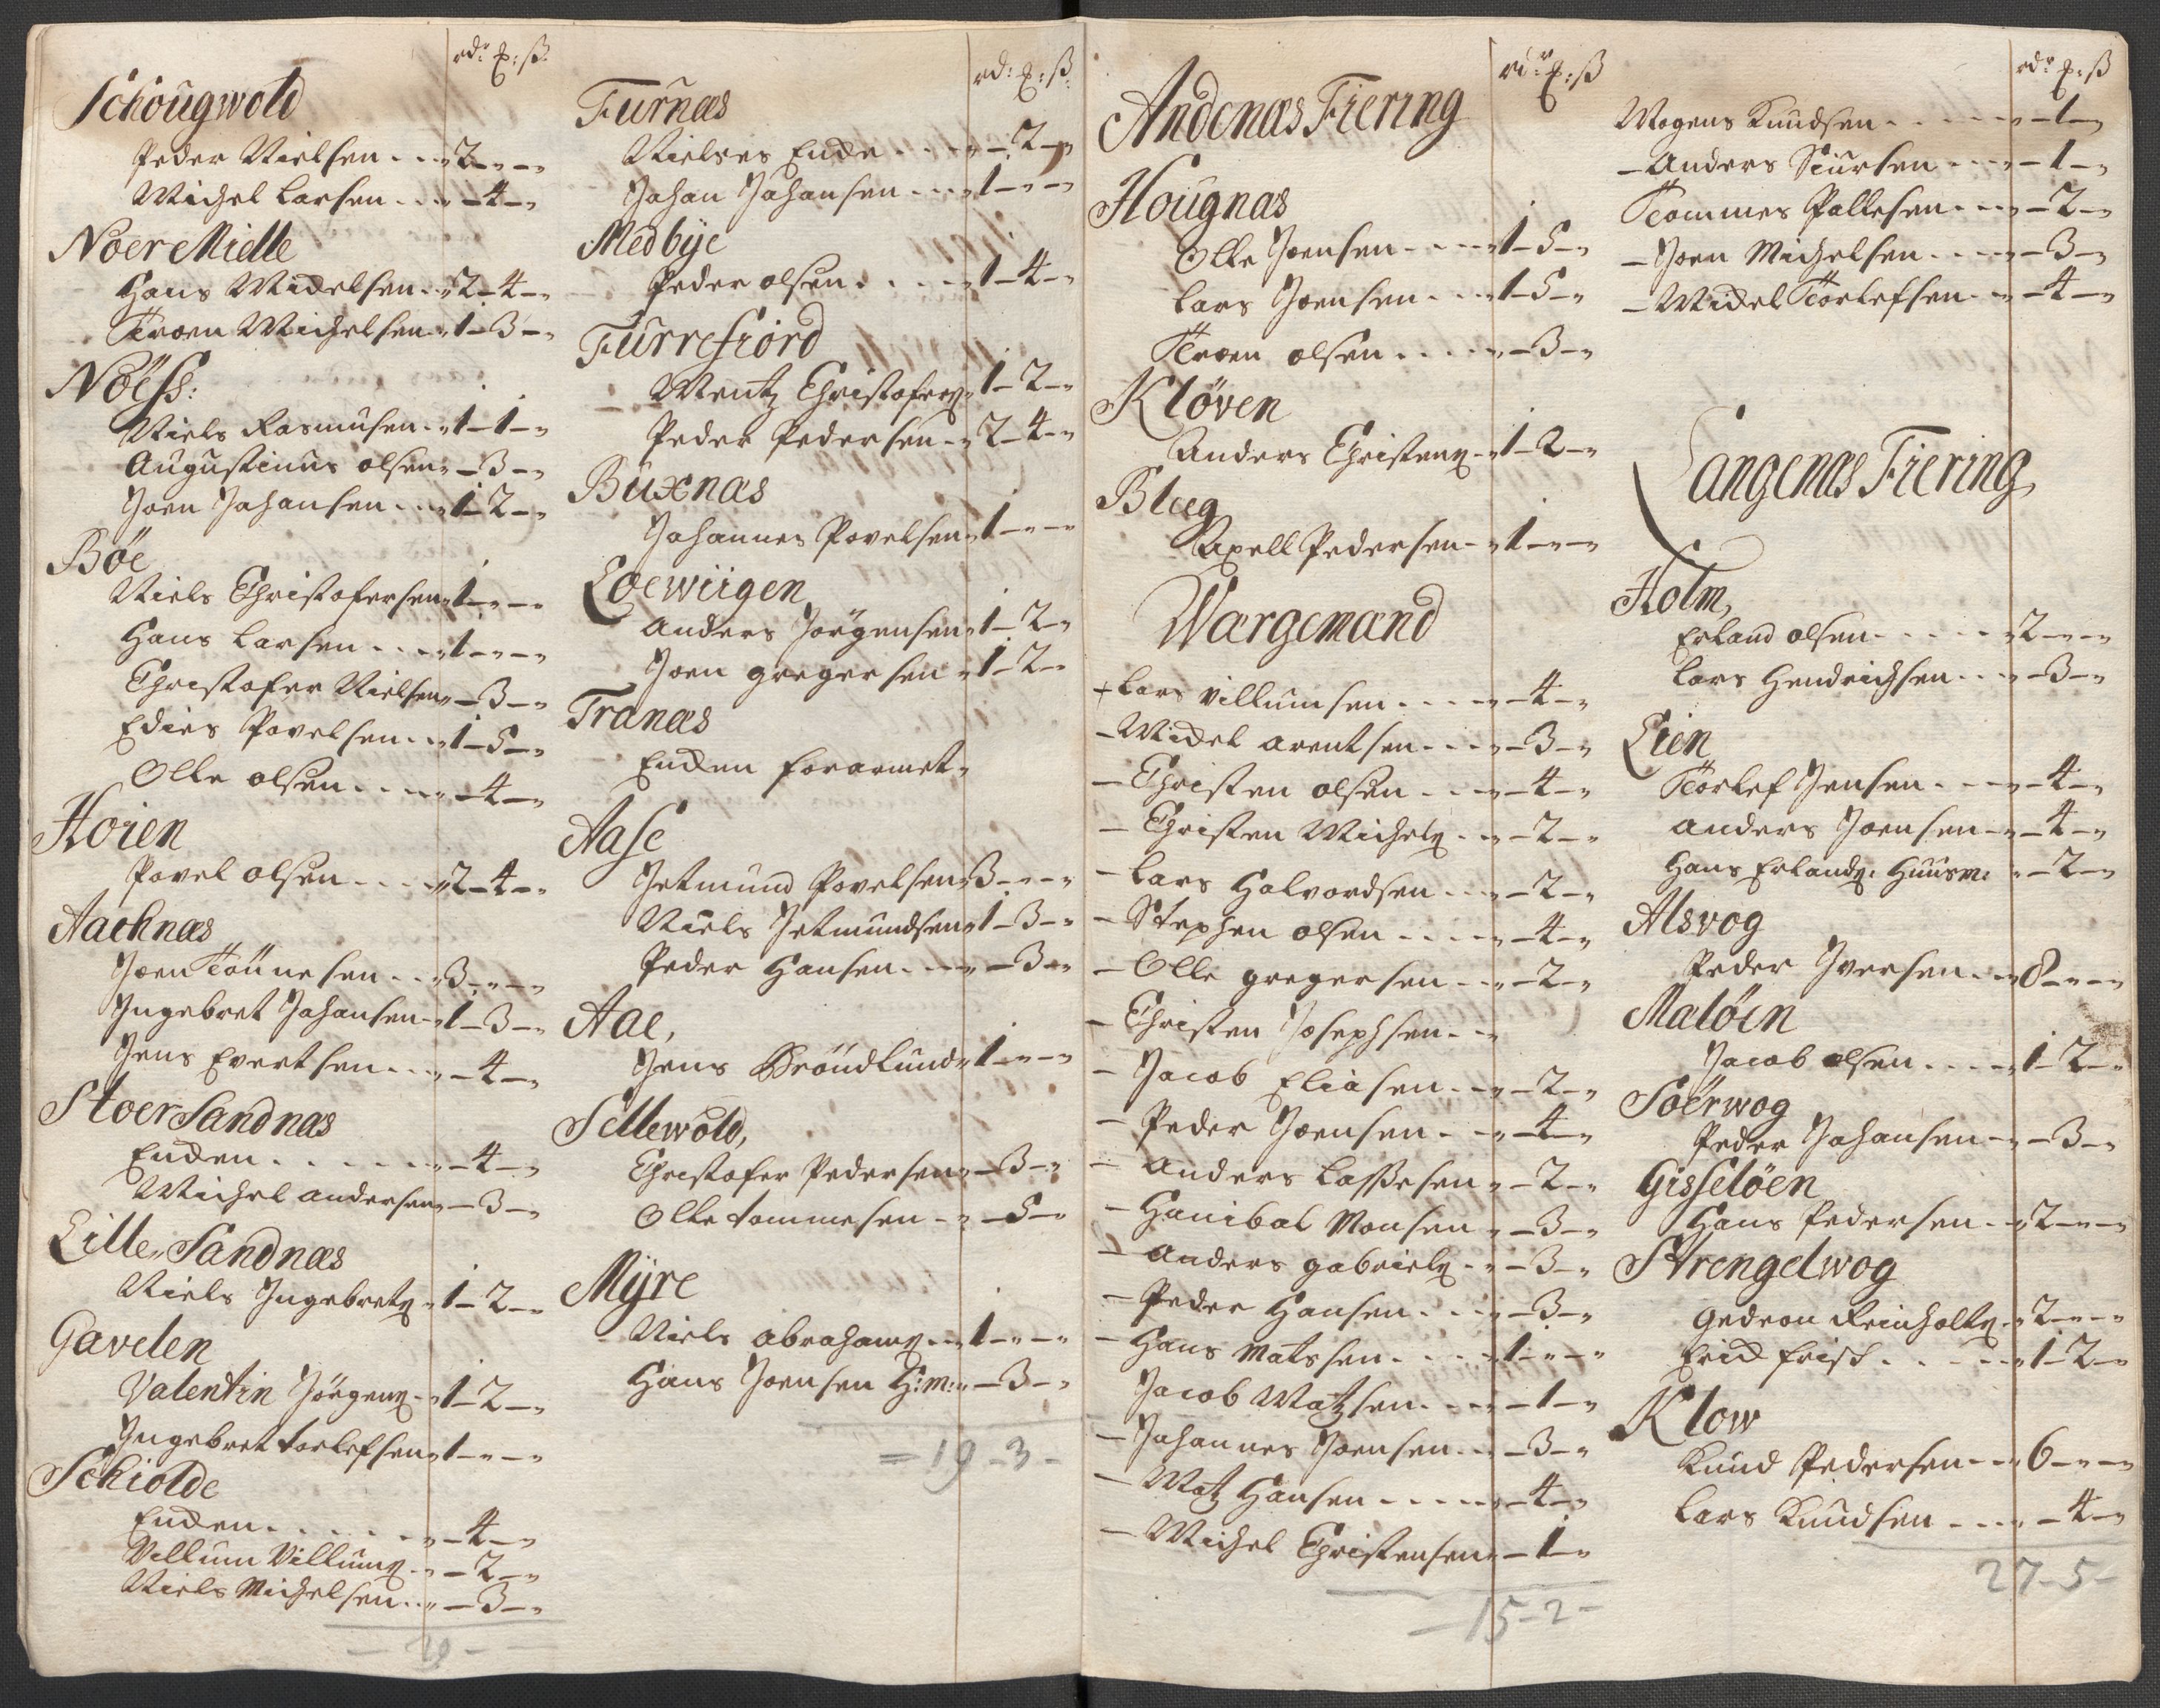 rdr ẜ: ß:
Schougwold
Peder Nielsen . . „ 2 – „ – „
Michel Larsen . . „ – 4 – „
Noer Mielle
Hans Michelsen . „ 2 – 4 – „
Troen Michelsen „ 1 – 3 – „
Nöeß:
Niels Rasmusen . „ 1 – 1 – „
Augustinus olsen „ – 3 – „
Joen Johansen . . „ 1 – 2 – „
Böe
Niels Christofersen „ 1 – „ – „
Hans Larsen . . . „ 1 – „ – „
Christofer Nielsen „ – 3 – „
Edies Povelsen . . „ 1 – 5 – „
Olle olsen . . . . „ – 4 – „
Hoien
Povel olsen . . . „ 2 – 4 – „
Aachnæs
Joen Tönnesen . . „ 3 – „ – „
Ingebret Johansen „ 1 – 3 – „
Jens Evertsen . . . „ – 4 – „
Stoer Sandnæs
Enchen . . . . . . „ – 4 – „
Michel andersen „ – 3 – „
Lille Sandnæs
Niels Ingebretz „ 1 – 2 – „
Gavelen
Valentin Jörgenz „ 1 – 2 – „
Ingebret torlefsen „ 1 – „ – „
Schiolde
Enchen . . . . . . „ – 4 – „
Villum Villumz . „ – 2 – „
Niels Michelsen . . „ – 3 – „
rd: ẜ: ß:
Furnæs
Nielses Enche . . . . „ – 2 – „
Johan Johansen . . . „ 1 – „ – „
Medbye
Peder olsen . . . . „ 1 – 4 – „
Furrefiord
Mentz Christoferz „ 1 – 2 – „
Peder Pedersen . . „ 2 – 4 – „
Buxnæs
Johannes Povelsen „ 1 – „ – „
Loewiigen
Anders Jörgensen „ 1 – 2 – „
Joen gregersen „ 1 – 2 – „
Tranæs
Enchen forarmet „
Aase
Jetmund Povelsen „ 3 – „ – „
Niels Jetmundsen „ 1 – 3 – „
Peder Hansen . . . „ – 3 – „
Aae,
Jens Gröndlund „ 1 – „ – „
Sellewold,
Christofer Pedersen „ – 3 – „
Olle tommesen . „ – 5 – „
Myre
Niels abrahamz . . „ 1 – „ – „
Hans Joensen H:m: „ – 3 – „
= 19 – 3 –
rdr ẜ: ß
Andenæs Fiering
Hougnæs
Olle Joensen . . . . „ 1 – 5 – „
Lars Joensen . . . „ 1 – 5 – „
Troen olsen . . . . „ – 3 – „
Klöven
Anders Christenz „ 1 – 2 – „
Bleeg
Axell Pedersen „ 1 – „ – „
Wargemænd
+ Lars villumsen . . . . „ – 4 – „
– Michel arentsen . . . „ – 3 – „
– Christen olsen . . . „ – 4 – „
– Christen Michelz . . „ – 2 – „
– Lars Halvordsen . . „ – 2 – „
– Stephen olsen . . . . „ – 4 – „
– Olle gregersen . . . „ – 2 – „
– Christen Josephsen . . „
– Jacob Eliasen . . . „ – 2 – „
– Peder Joensen . . . „ – 4 – „
– Anders Lassesen „ – 2 – „
– Hanibal Monsen „ – 3 – „
– Anders gabrielz . „ – 3 – „
– Peder Hansen . . . „ – 3 – „
– Hans Matssen . . . . „ 1 – „ – „
Jacob Matzsen . . . „ – 1 – „
– Johannes Joensen . . „ – 3 – „
– Matz Hansen . . . . . „ – 4 – „
– Michel Christensen „ – 1 – „
– 15 – 2 –
rdr ẜ: ß
Mogens Knudsen . . . . . „ – 1 – „
– Anders Siursen . . . „ – 1 – „
Tommes Pallesen . . . „ – 2 – „
– Joen Michelsen . . . „ – 3 – „
– Michel Torlefsen . . „ – 4 – „
Langenæs Fiering
Holm,
Erland olsen . . . . . „ 2 – „ – „
Lars Hendrichsen . . „ – 3 – „
Lien
Torlef Jensen . . . „ – 4 – „
Anders Joensen . . „ – 4 – „
Hans Erlandz: Huusm: „ – 2 – „
Alsvog
Peder Iversen . . „ 8 – „ – „
Malöen
Jacob olsen . . . . „ 1 – 2 – „
Söerwog
Peder Johansen . „ – 3 – „
Gisselöen
Hans Pedersen . . „ 2 – „ – „
Strengelwog
Gedeon Reinholtz . „ 2 – „ – „
Erich frisk . . . . . „ 1 – 2 – „
Klow
Knud Pedersen . . „ 6 – „ – „
Lars Knudsen . . . „ – 4 – „
27 – 5 –